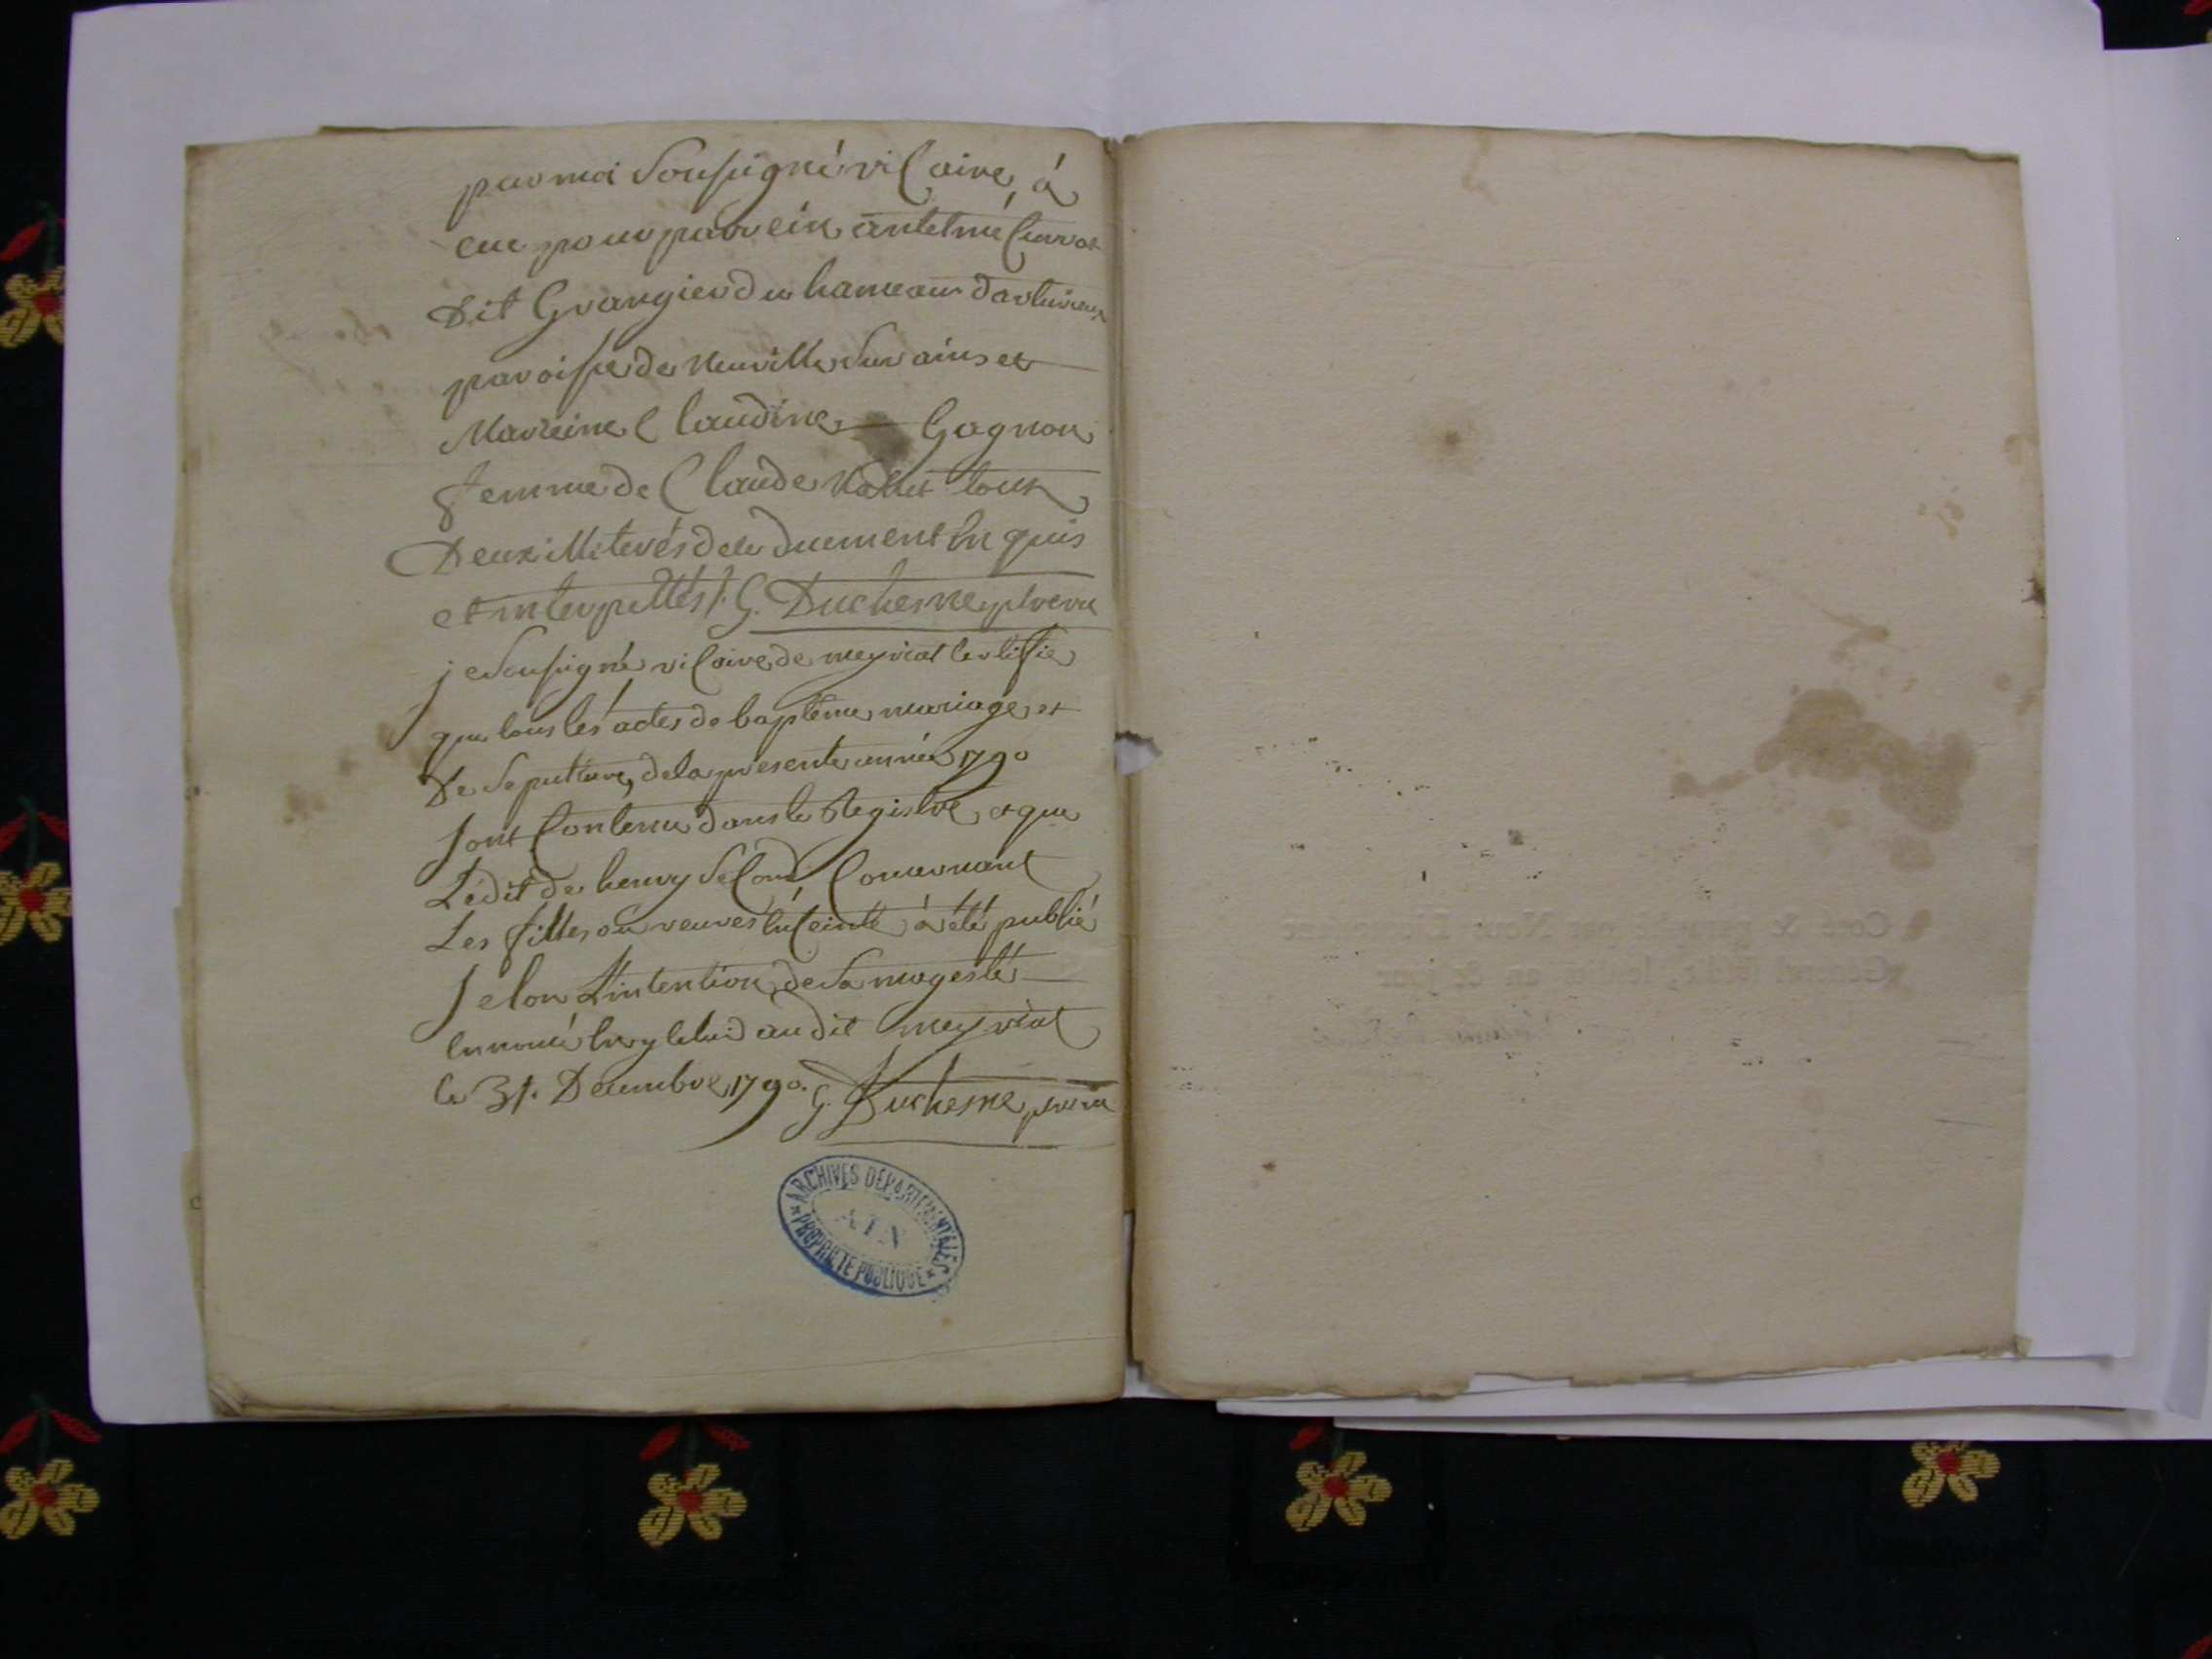 par moi soussigné vicaire, à
eue pour parrein antelmé Curvat
dit Grangier du hameau
paroisse de neuville sur ains et
Marreine Claudine Gagnon
femme de Claude tous
Deux illiterés de ce duement enquis
et interpellés /. G. Duchesne
je soussigné vicaire de meyriat certiffie
que tous les actes de baptême mariage et
De sepulture, de la presente année 1790
sont contenu dans le Registre, et que
L'édit de henry second concernant
Les filles ou veuves enceinte à été publié
selon L'intention de sa magesté
audit meyriat
le 31. Decembre 1790. G. Duchesne
ARCHIVES DEPARTEMENTALES
AIN
PROPRIETE PUBLIQUE